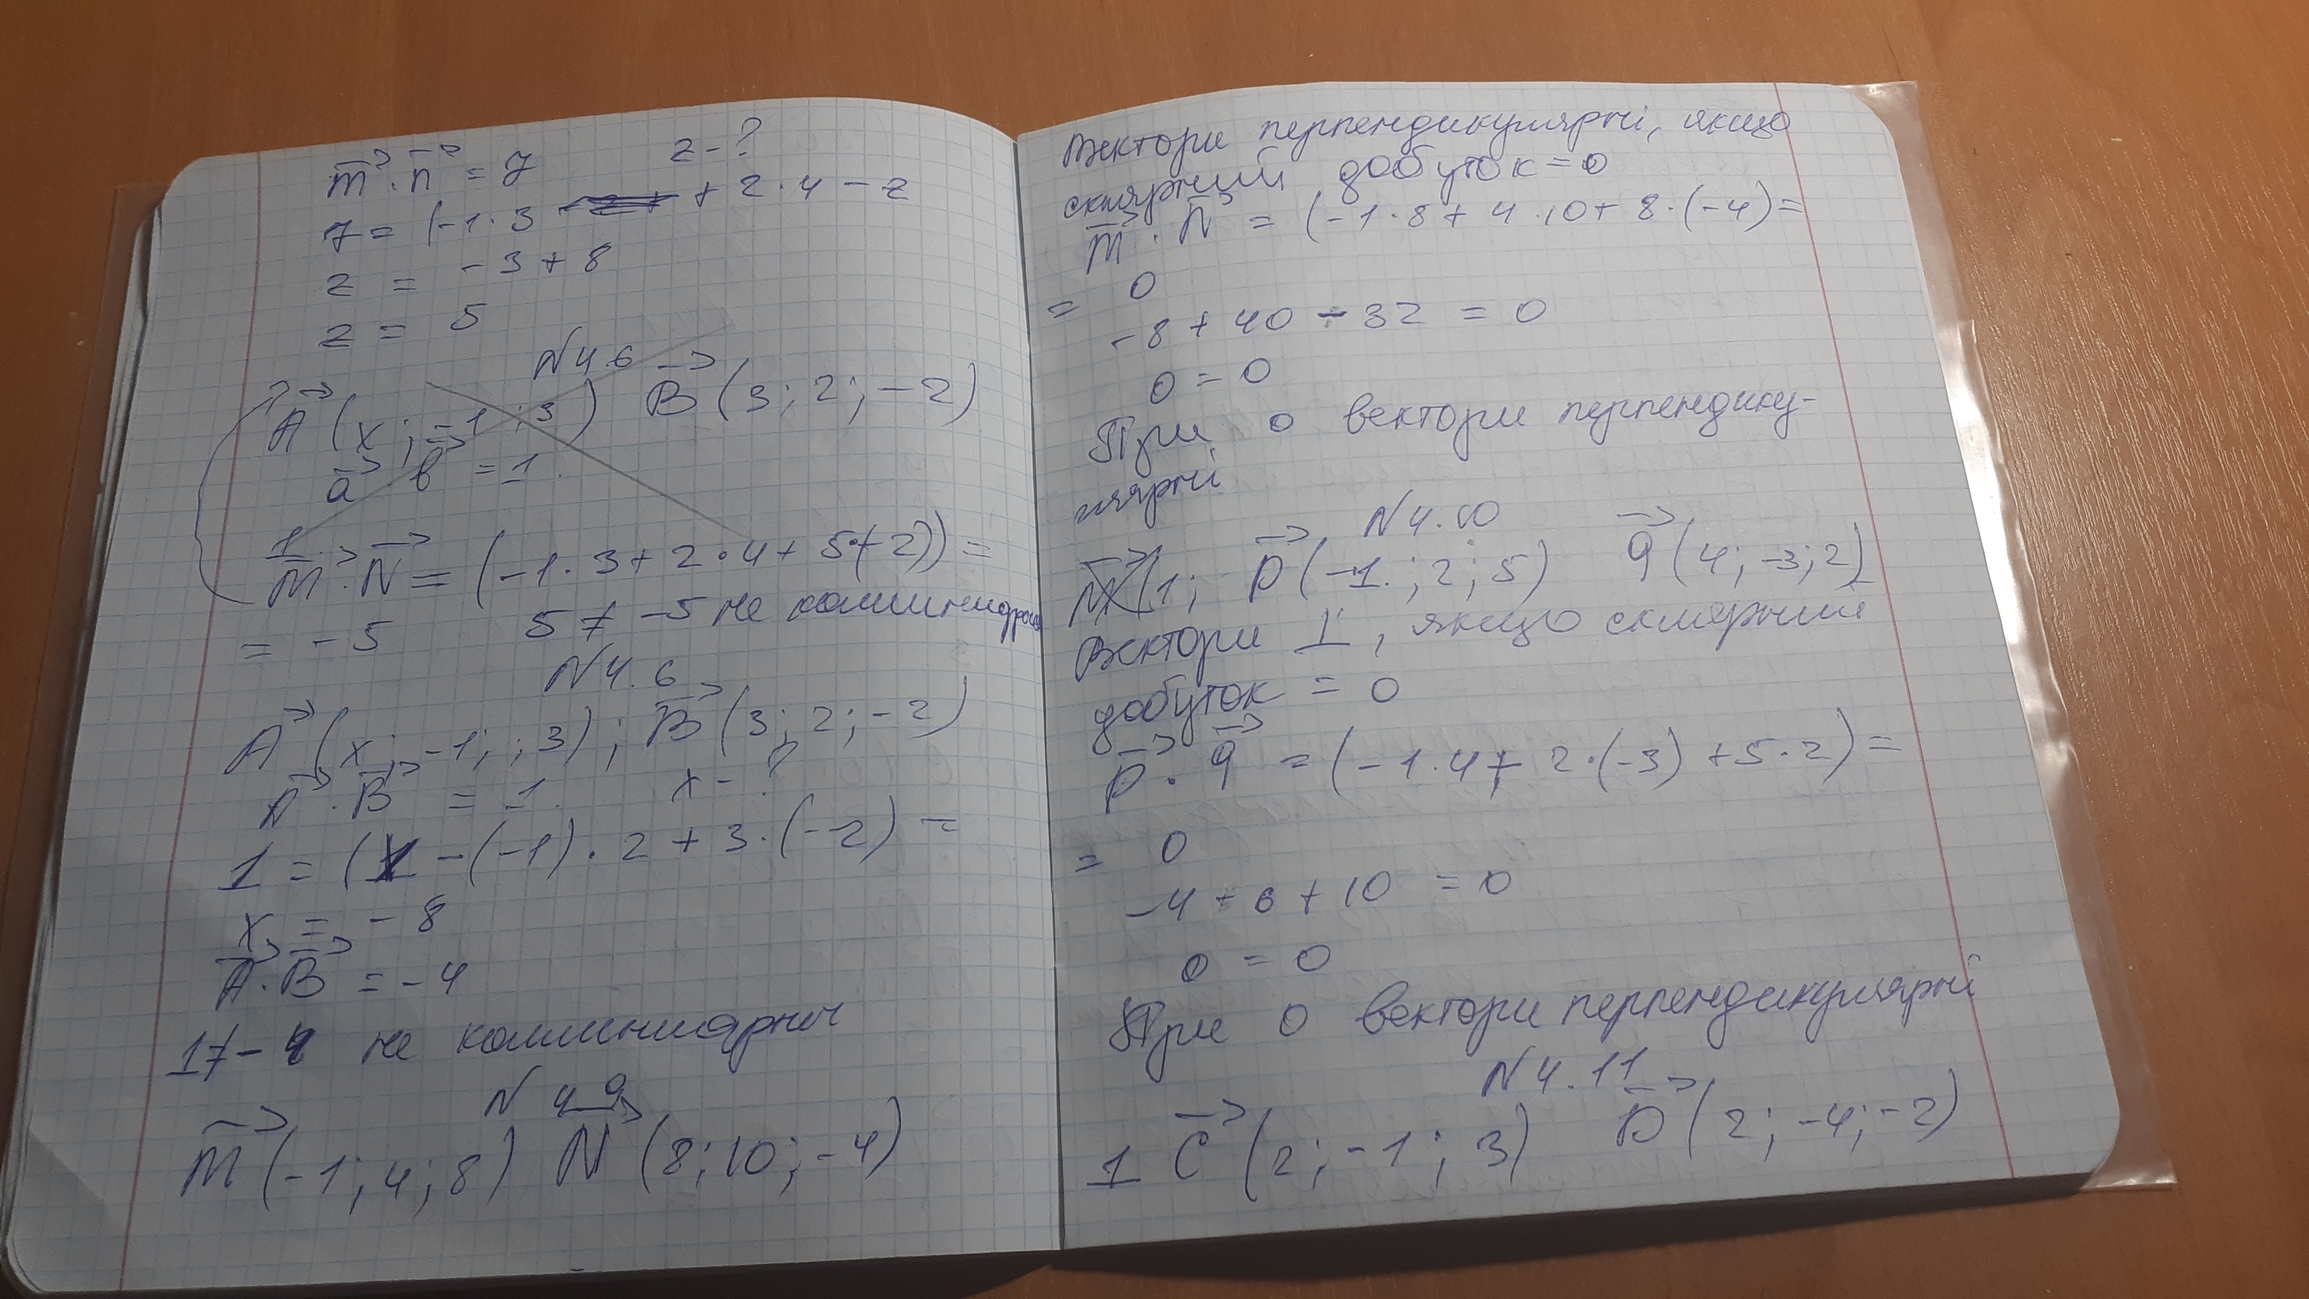 m⃗ · n⃗ = 7 z - ?
7 = (-1 · 3 + 2 · 4 - z
z = -3 + 8
z = 5
N 4.6
A⃗ (x; -1; 3) B⃗ (3; 2; -2)
a⃗ · b⃗ = 1.
1
M⃗ · N⃗ = (-1 · 3 + 2 · 4 + 5·(-2)) =
= -5 5 ≠ -5 не
N 4.6
A⃗ (x; -1; ; 3) ; B⃗ (3; 2; -2)
A⃗ · B⃗ = 1. x - ?
1 = (x - (-1) · 2 + 3 · (-2) =
x = -8
A⃗ · B⃗ = -4
1 ≠ -4 не
N 4.9
M⃗ (-1; 4; 8) N⃗ (8; 10; -4)
Вектори перпендикулярні, якщо
скалярний добуток = 0
M⃗ · N⃗ = (-1 · 8 + 4 · 10 + 8 · (-4) =
= 0
-8 + 40 - 32 = 0
0 = 0
При 0 вектори перпендику-
лярні
N 4.10
M⃗ (1; p⃗ (-1.; 2; 5) q⃗ (4; -3; 2)
Вектори ⊥, якщо скалярний
добуток = 0
p⃗ · q⃗ = (-1 · 4 + 2 · (-3) + 5 · 2) =
= 0
-4 - 6 + 10 = 0
0 = 0
При 0 вектори перпендикулярні
N 4.11
1 C⃗ (2; -1; 3) D⃗ (2; -4; -2)